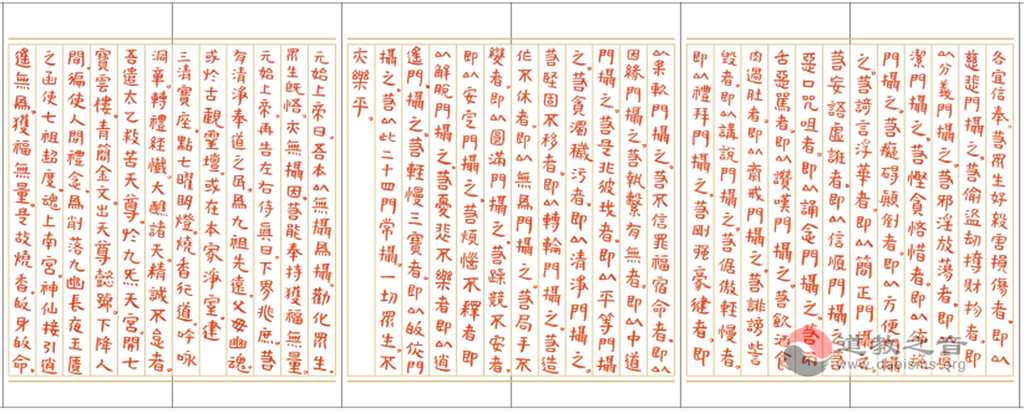 各宜信奉。若眾生好殺害損傷者。即以
慈悲門攝之。若偷盜劫掠財物者。即
以分義門攝之。若邪淫放蕩者。即以
潔門攝之。若慳貪悋惜者。即以布施
門攝之。若癡碍顛倒者。即以方便門攝
之。若諂言浮華者。即以簡正門攝之。
若妄語虛誑者。即以信順門攝之。若
惡口咒咀者。即以誦念門攝之。若兩
舌惡罵者。即以讚嘆門攝之。若飲酒食
肉過肚者。即以齋戒門攝之。若誹謗訾
毀者。即以講說門攝之。若倨傲輕慢者。
即以禮拜門攝之。若剛強豪健者。即
以柔軟門攝之。若不信罪福宿命者。即以
因緣門攝之。若執繫有無者。即以中道
門攝之。若是非彼我者。即以平等門攝
之。若貪濁穢污者。即以清淨門攝之。
若堅固不移者。即以轉輪門攝之。若造
作不休者。即以無為門攝之。若局手不
變者。即以圓滿門攝之。若躁競不安者。
即以安定門攝之。若煩惱不釋者。即
以解脫門攝之。若憂悲不樂者。即以逍
遙門攝之。若輕慢三寶者。即以皈依門
攝之。若以此二十四門常攝一切眾生。不
亦樂乎。
元始上帝曰。吾本以無攝為攝。勸化眾生。
眾生既悟。亦無攝因。若能奉持。獲福無量。
元始上帝再告左右侍無。日下界兆庶。若
有清淨奉道之民。為九祖先遠。父母幽魂。
或於古觀靈壇。或在本家淨室。建
三清寶座。點七曜明燈。燒香行道。吟咏
洞章。轉禮經懺。大醮諸天。精誠不怠者。
吾遣太乙救苦天尊。於九炁天宮。開七
寶雲樓。青簡金文。出天尊懿號。下降人
間。徧使人間禮念。為削落九幽長夜玉匱
之函。使七祖超度。魂上南宮。神仙接引。逍
遙無為。獲福無量。是故燒香皈身皈命。
道教之音
www.daoisms.org